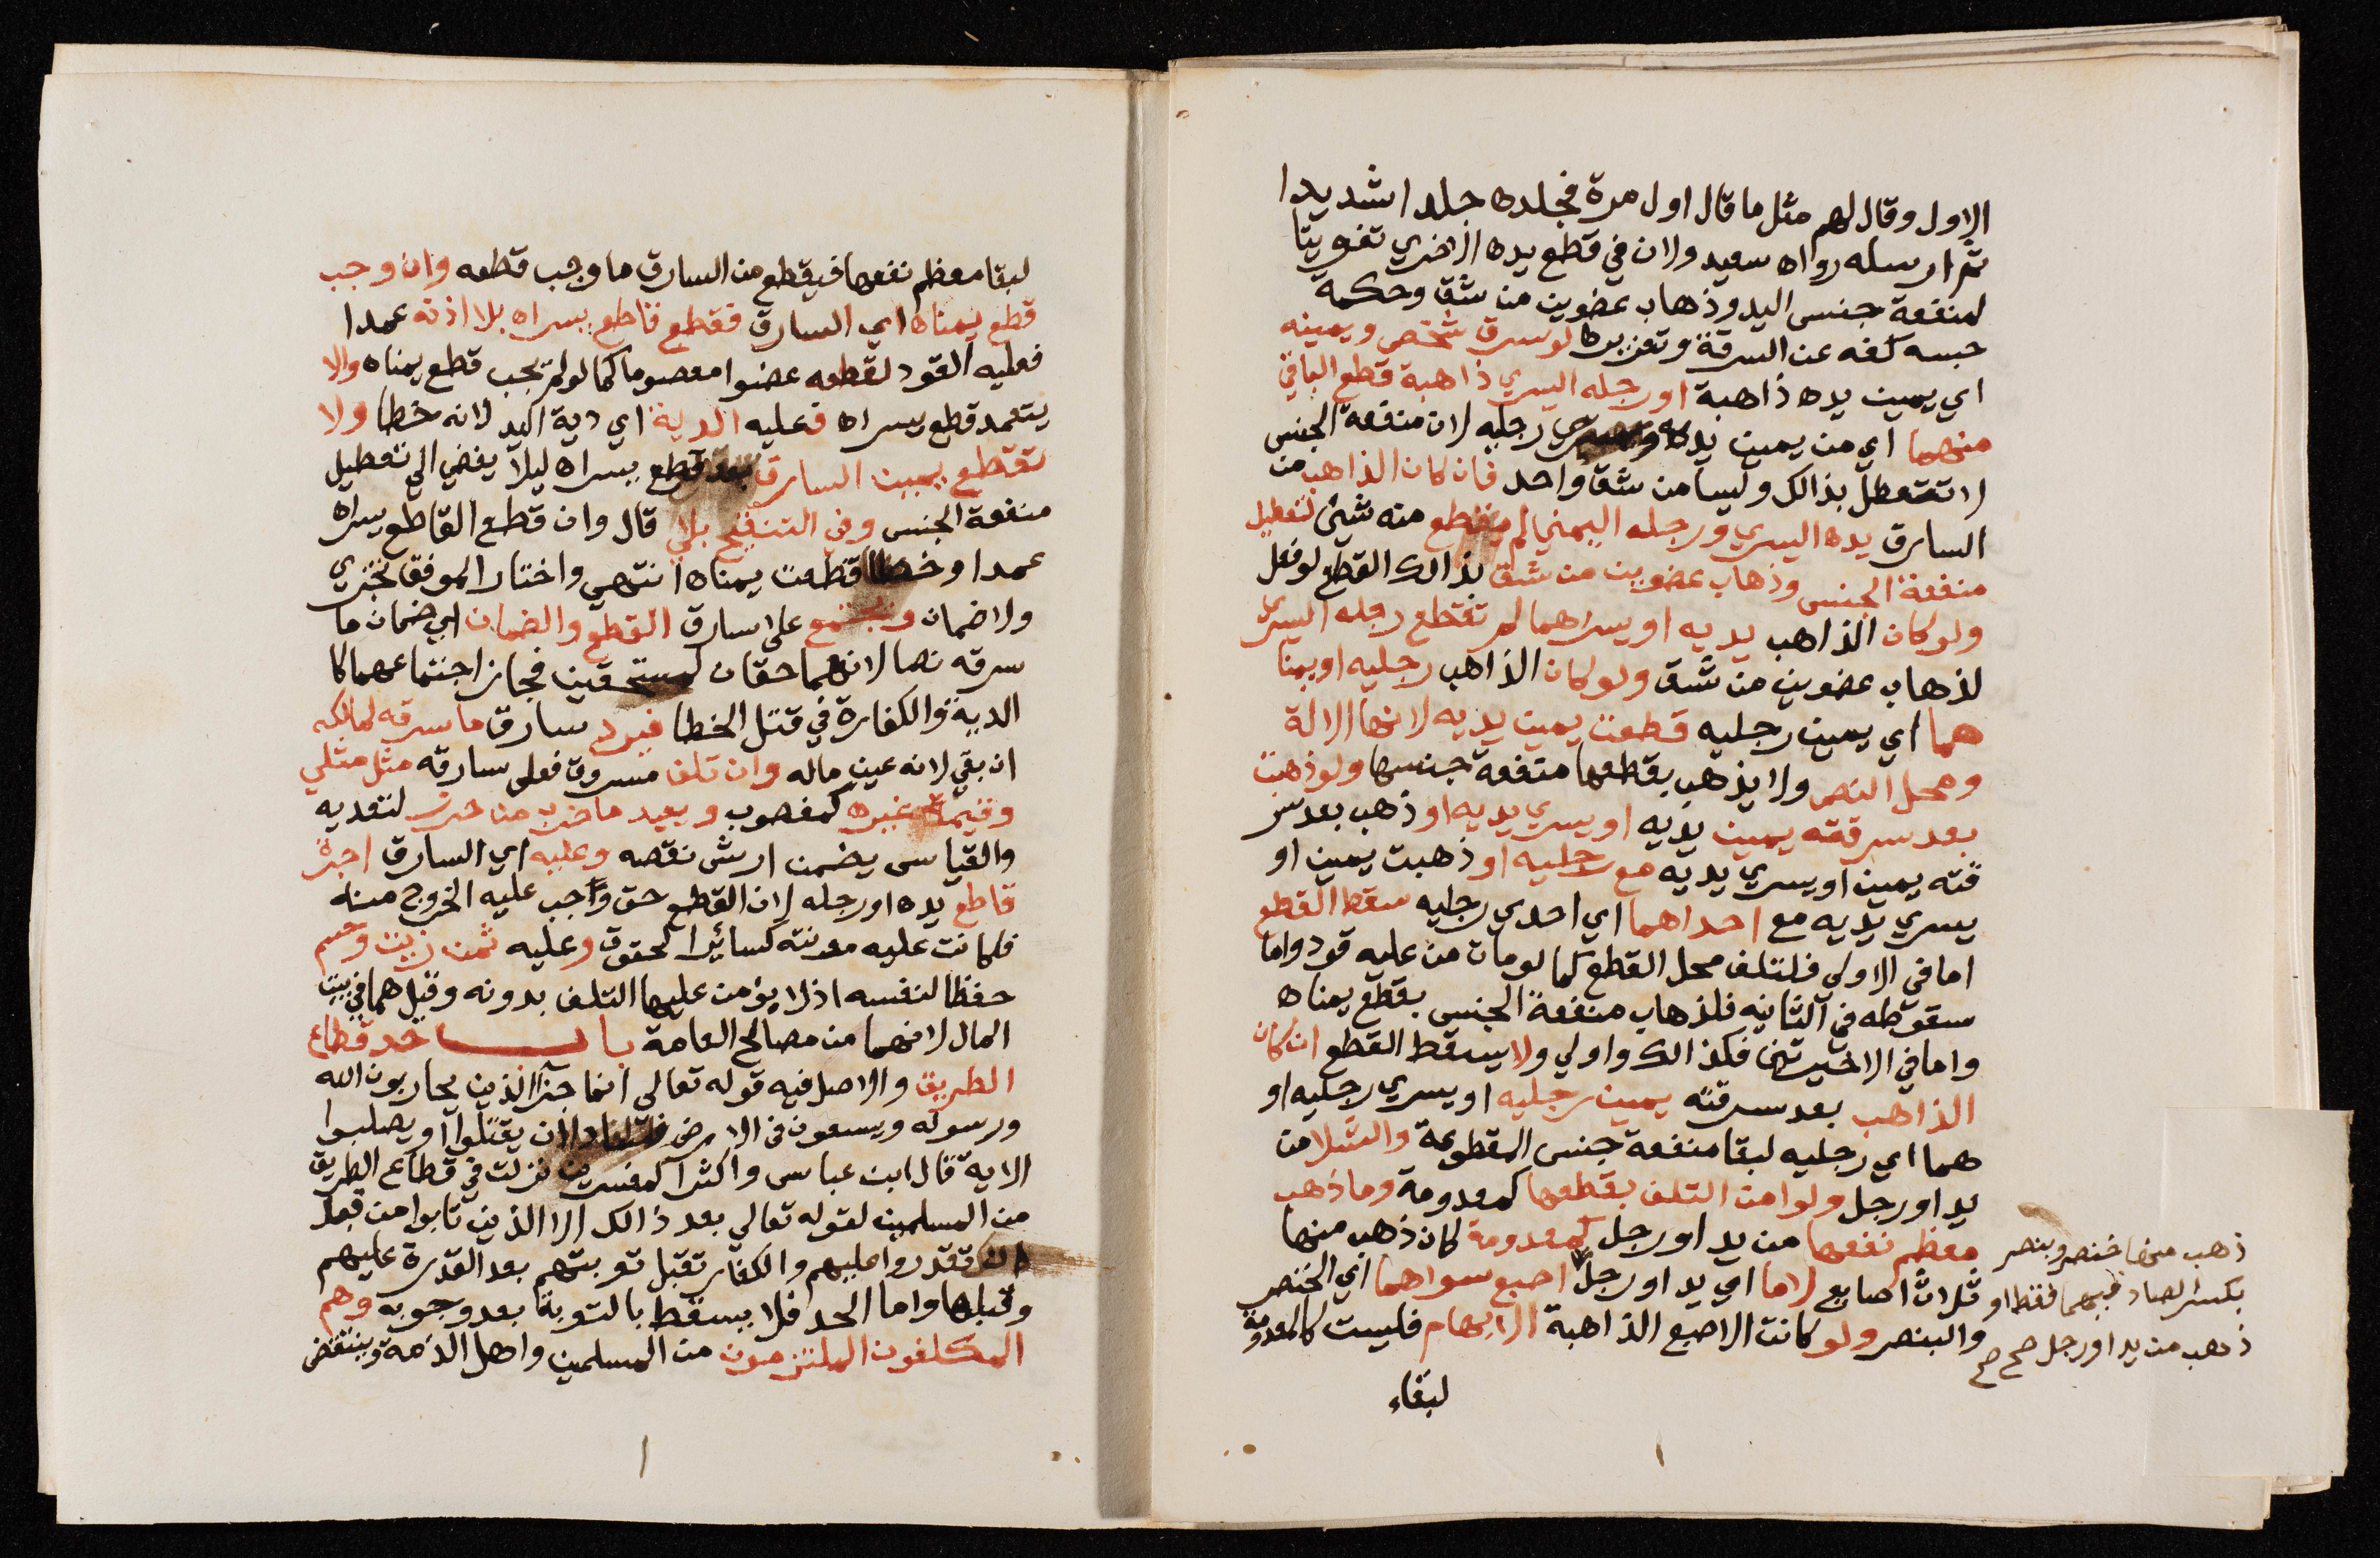 الاول وقال لهم مثل ما قال اول مرة فجلده جلدا شديدا
ثم ارسله رواه سعيد ولان في قطع يده الاخري تفويتا
لمنفعة جنس اليد وذهاب عضوين من شق وحكمة
حبسه كفه عن السرقة وتعزيره لو سرق شخص ويمينه
اي يمين يده ذاهبة او رجله اليسري ذاهبة قطع الباقي
منهما اي من يمين يديه ويسري رجليه لان منفعة الجنس
لا تتعطل بذالك وليسا من شق واحد فان كان الذاهب من
السارق يده اليسري ورجله اليمني لم يقطع منه شيئ لتعطيل
منفعة الجنس وذهاب عضوين من شق بذالك القطع لو فعل
ولو كان الذاهب يديه او يسراهما لم تقطع رجله اليسري
لذهاب عضوين من شق ولو كان الذاهب رجليه او يمنا
هما اي يمين رجليه قطعت يمين يديه لانها الالة
ومحل النص ولا يذهب بقطعها منفعة جنسها ولو ذهبت
بعد سرقته يمين يديه او يسري يديه او ذهب بعد سر
قته يمين او يسري يديه مع رجليه او ذهبت يمين او
يسري يديه مع احداهما اي احدي رجليه سقط القطع
اما في الاولي فلتلف محل القطع كما لو مات من عليه قود واما
سقوطه في الثانيه فلذهاب منفعة الجنس بقطع يمناه
واما في الاخيرتين فكذالك واولي ولا يسقط القطع ان كان
الذاهب بعد سرقته يمين رجليه او يسري رجليه او
هما اي رجليه لبقا منفعة جنس المقطوعة والشلا من
يد او رجل ولو امن التلف بقطعها كمعدومة وما ذهب
معظم نفعها من يد او رجل كمعدومة كان ذهب منها
ثلاث اصابع لا ما اي يد او رجل اصبع سواهما اي الخنصر
والبنصر ولو كانت الاصبع الذاهبة الابهام فليست كالمعدومة
لبقاء
ذهب منها خنصر وبنصر
بكسر الصاد فيهما فقط او
ذهب من يد او رجل صح صح
لبقا معظم نفعها فيقطع من السارق ما وجب قطعه وان وجب
قطع يمناه اي السارق فقطع قاطع يسراه بلا اذنه عمدا
فعليه القود لقطعه عضوا معصوما كما لو لم يجب قطع يمناه والا
يتعمد قطع يسراه فعليه الدية اي دية اليد لانه خطا ولا
تقطع يمين السارق بعد قطع يسراه ليلا يفضي الي تعطيل
منفعة الجنس وفي التنقيح بلي قال وان قطع القاطع يسراه
عمدا او خطا قطعت يمناه انتهي واختار الموفق تجزي
ولا ضمان ويجتمع علي سارق القطع والضمان اي ضمان ما
سرقه نصا لانهما حقان لمستحقين فجاز اجتماعهما كا
لدية والكفارة في قتل الخطا فيرد سارق ما سرقه لمالكه
ان بقي لانه عين ماله وان تلف مسروق فعلي سارقه مثل مثلي
وقيمة غيره كمغصوب ويعيد ما خرب من حرز لتعديه
والقياس يضمن ارش نقصه وعليه اي السارق اجرة
قاطع يده او رجله لان القطع حق وجب عليه الخروج منه
فكانت عليه مونته كسائر الحقوق وعليه ثمن زيت وحسم
حفظا لنفسه اذ لا يؤمن عليها التلف بدونه وقيل هما في بيت
المال لانهما من مصالح العامة باب حد قطاع
الطريق والاصل فيه قوله تعالي انما جزآ الذين يحاربون الله
ورسوله ويسعون في الارض فسادا ان يقتلوا او يصلبوا
الاية قال ابن عباس واكثر المفسرين نزلت في قطاع الطريق
من المسلمين لقوله تعالي بعد ذالك الا الذين تابوا من قبل
ان تقدروا عليهم والكفار تقبل توبتهم بعد القدرة عليهم
وقبلها واما الحد فلا يسقط بالتوبة بعد وجوبه وهم
المكلفون الملتزمون من المسلمين واهل الذمة وينتقض